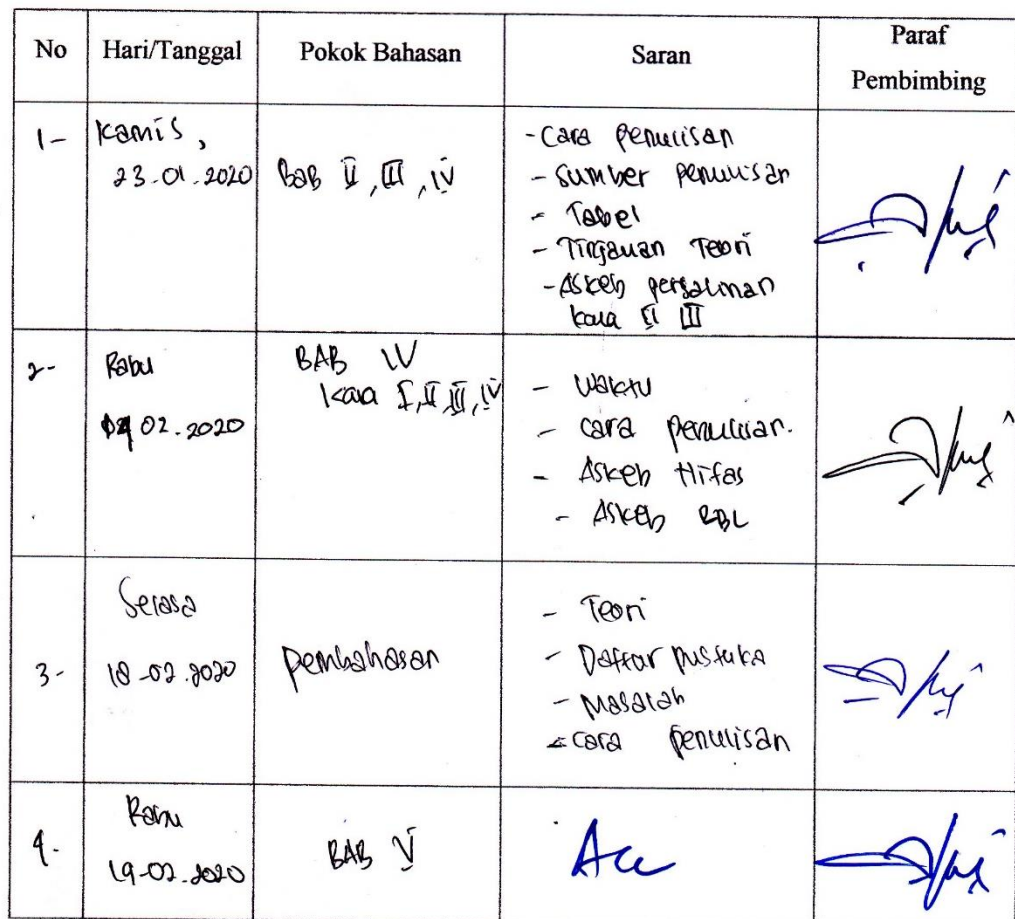 No Hari/Tanggal Pokok Bahasan Saran Paraf Pembimbing
1- Kamis, 23.01.2020 Bab II, III, IV
- Cara penulisan
- Sumber penulisan
- Tabel
- Tinjauan Teori
- Askeb persalinan
kala II III
2- Rabu 02.2020 BAB IV
Kala I, II, III, IV
- Waktu
- cara penulisan.
- Askeb Nifas
- Askeb BBL
3- Selasa 18-02.2020 Pembahasan
- Teori
- Daftar pustaka
- Masalah
- Cara penulisan
4. Rabu 19-02.2020 BAB V Acc